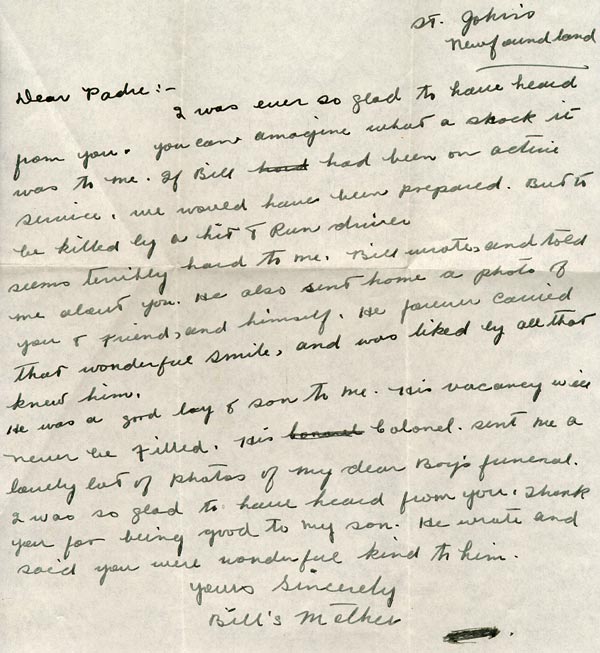 St. John's
Newfoundland
Dear Padre:-
I was ever so glad to have heard
from you. you can amagine what a shock it
was to me. If Bill had been on active
service, we would have been prepared. But to
be killed by a hit & Run driver
seems terribly hard to me. Bill wrote, and told
me about you. He also sent home a photo of
you & Friend, and himself. He forever carried
that wonderful smile, and was liked by all that
knew him.
He was a good boy & son to me. His vacancy will
never be Filled. His Colonel. sent me a
lovely lot of photos of my dear Boy's funeral.
I was so glad to have heard from you. Thank
you for being good to my son. He wrote and
said you were wonderful kind to him.
yours Sincerely
Bill's Mother